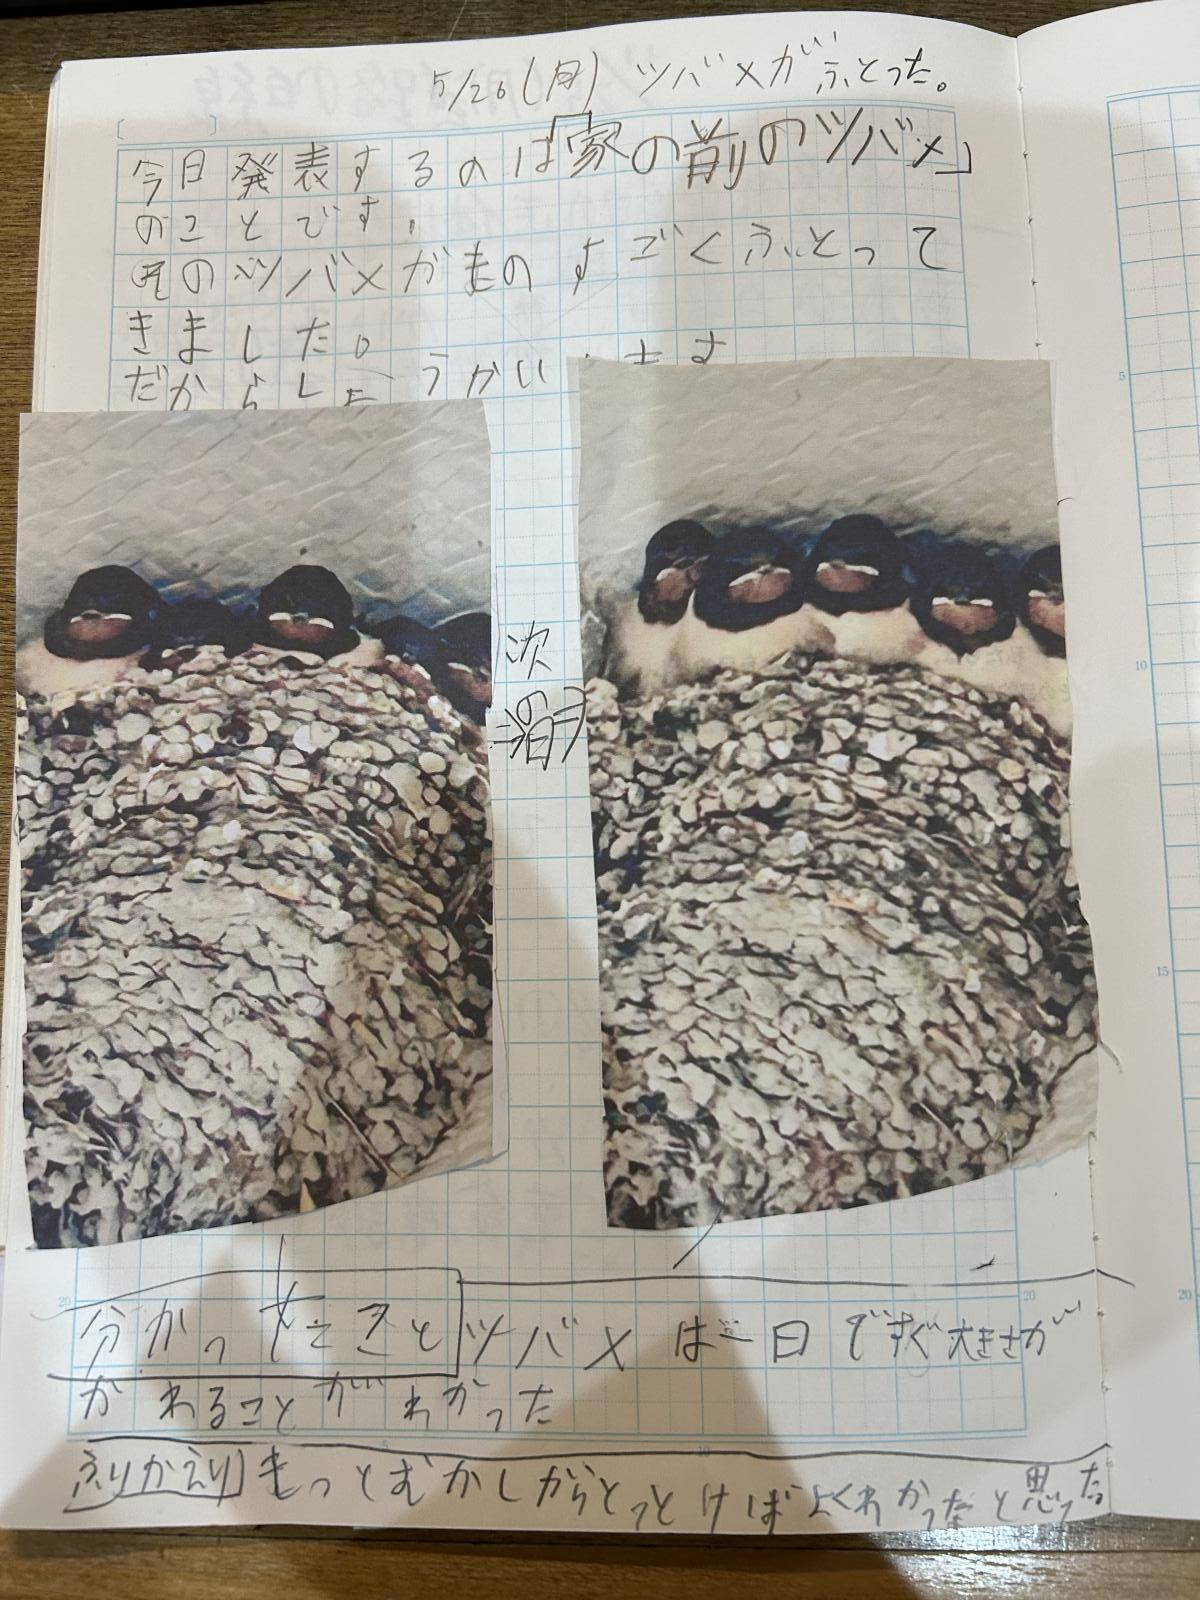 5/26(月) ツバメがふとった。
今日発表するのは「家の前のツバメ」
のことです。
そのツバメがものすごくふとって
きました。
だからしょうかいします
次
20
20
分かったこと ツバメは一日ですぐ大きさが
かわることがわかった
ふりかえり もっとむかしからとっとけばよくわかったなと思った
5
10
15
20